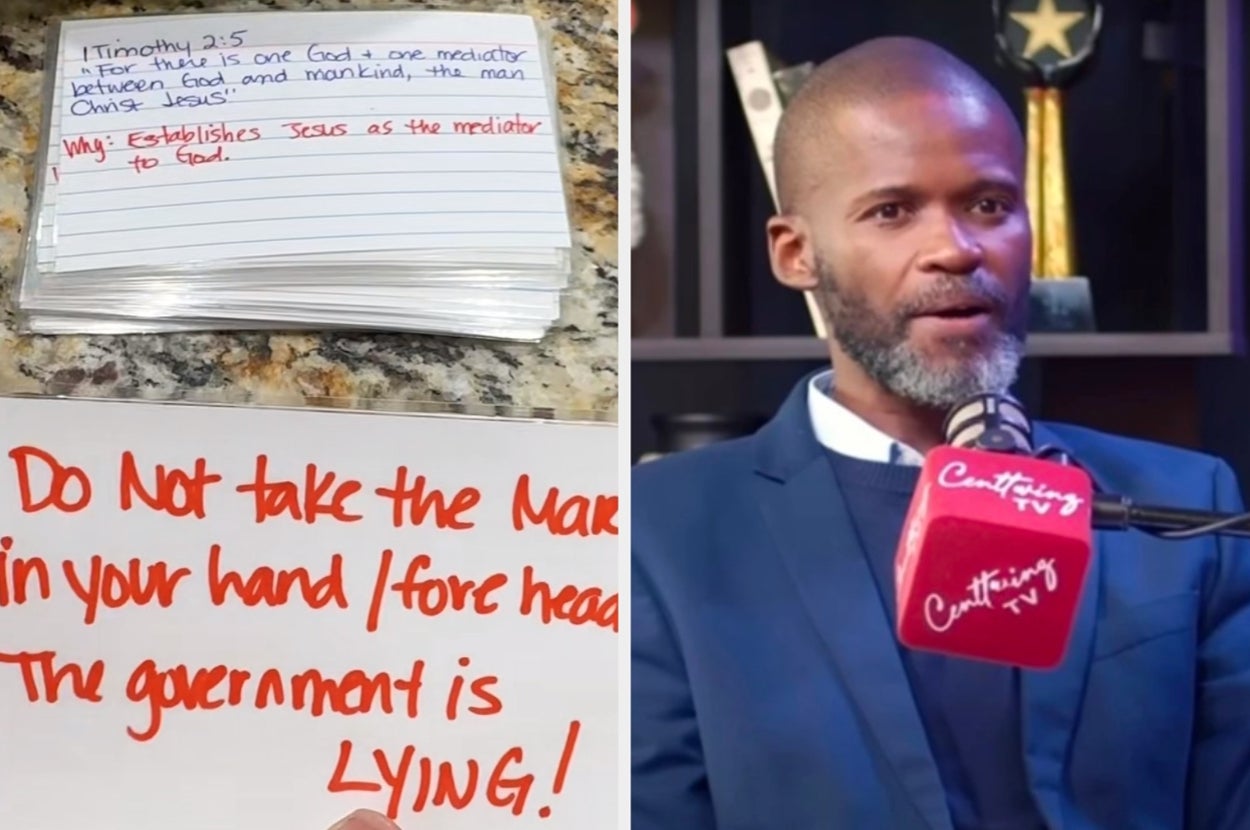 1 Timothy 2:5
"For there is one God + one mediator
between God and mankind, the man
Christ Jesus"
Why: Establishes Jesus as the mediator
to God.
Do Not take the Mar
in your hand / fore head
The government is
LYING!
Centtwing
TV
Centtwing
TV